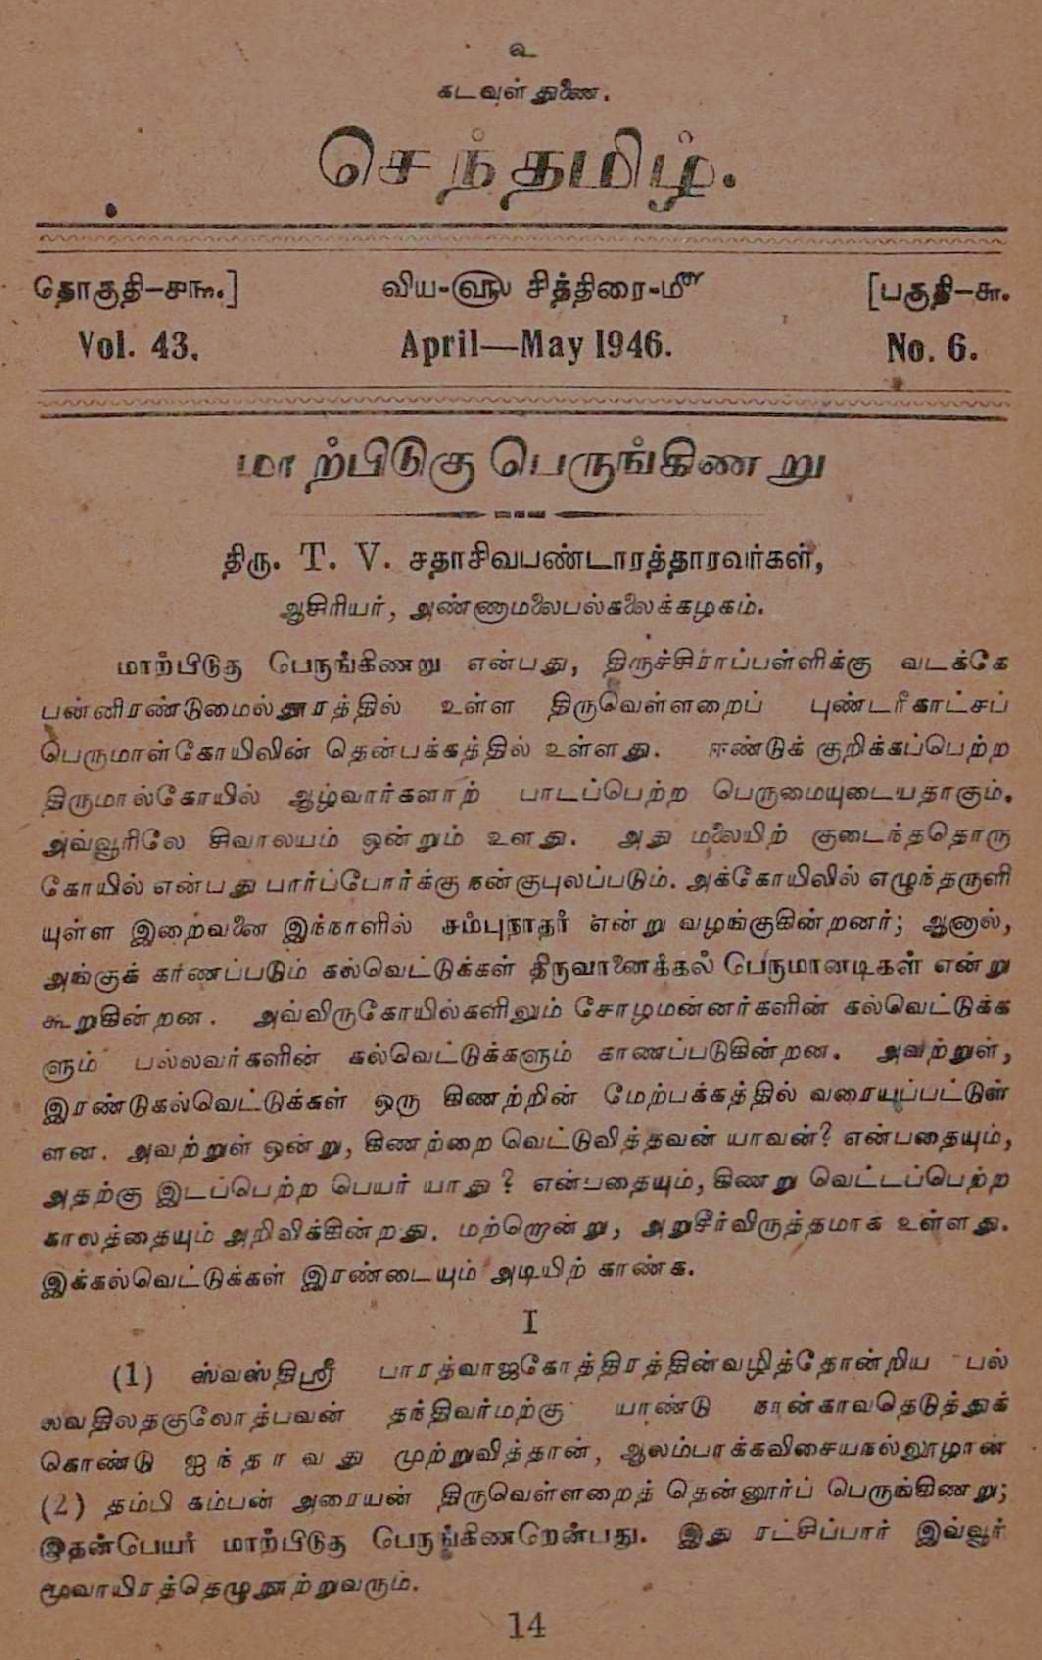 உ
கடவுள் துணை.
செந்தமிழ்.
தொகுதி–௪௩.] விய-௵ சித்திரை-௴ [பகுதி–௬.
Vol. 43. April—May 1946. No. 6.
மாற்பிடுகு பெருங்கிணறு
திரு. T. V. சதாசிவபண்டாரத்தாரவர்கள்,
ஆசிரியர், அண்ணாமலைபல்கலைக்கழகம்.
மாற்பிடுகு பெருங்கிணறு என்பது, திருச்சிராப்பள்ளிக்கு வடக்கே
பன்னிரண்டுமைல்தூரத்தில் உள்ள திருவெள்ளறைப் புண்டரீகாட்சப்
பெருமாள்கோயிலின் தென்பக்கத்தில் உள்ளது. ஈண்டுக் குறிக்கப்பெற்ற
திருமால்கோயில் ஆழ்வார்களாற் பாடப்பெற்ற பெருமையுடையதாகும்.
அவ்வூரிலே சிவாலயம் ஒன்றும் உளது. அது மலையிற் குடைந்ததொரு
கோயில் என்பது பார்ப்போர்க்கு நன்குபுலப்படும். அக்கோயிலில் எழுந்தருளி
யுள்ள இறைவனை இந்நாளில் சம்புநாதர் என்று வழங்குகின்றனர்; ஆனால்,
அங்குக் காணப்படும் கல்வெட்டுக்கள் திருவானைக்கல் பெருமானடிகள் என்று
கூறுகின்றன. அவ்விருகோயில்களிலும் சோழமன்னர்களின் கல்வெட்டுக்க
ளும் பல்லவர்களின் கல்வெட்டுக்களும் காணப்படுகின்றன. அவற்றுள்,
இரண்டுகல்வெட்டுக்கள் ஒரு கிணற்றின் மேற்பக்கத்தில் வரையப்பட்டுள்
ளன. அவற்றுள் ஒன்று, கிணற்றை வெட்டுவித்தவன் யாவன்? என்பதையும்,
அதற்கு இடப்பெற்ற பெயர் யாது? என்பதையும், கிணறு வெட்டப்பெற்ற
காலத்தையும் அறிவிக்கின்றது. மற்றொன்று, அறுசீர்விருத்தமாக உள்ளது.
இக்கல்வெட்டுக்கள் இரண்டையும் அடியிற் காண்க.
I
(1) ஸ்வஸ்திஸ்ரீ பாரத்வாஜகோத்திரத்தின்வழித்தோன்றிய பல்
லவதிலதகுலோத்பவன் தந்திவர்மற்கு யாண்டு நான்காவதெடுத்துக்
கொண்டு ஐந்தாவது முற்றுவித்தான், ஆலம்பாக்கவிசையநல்லூழான்
(2) தம்பி கம்பன் அரையன் திருவெள்ளறைத் தென்னூர்ப் பெருங்கிணறு;
இதன்பெயர் மாற்பிடுகு பெருங்கிணறென்பது. இது ரட்சிப்பார் இவ்வூர்
மூவாயிரத்தெழுநூற்றுவரும்.
14